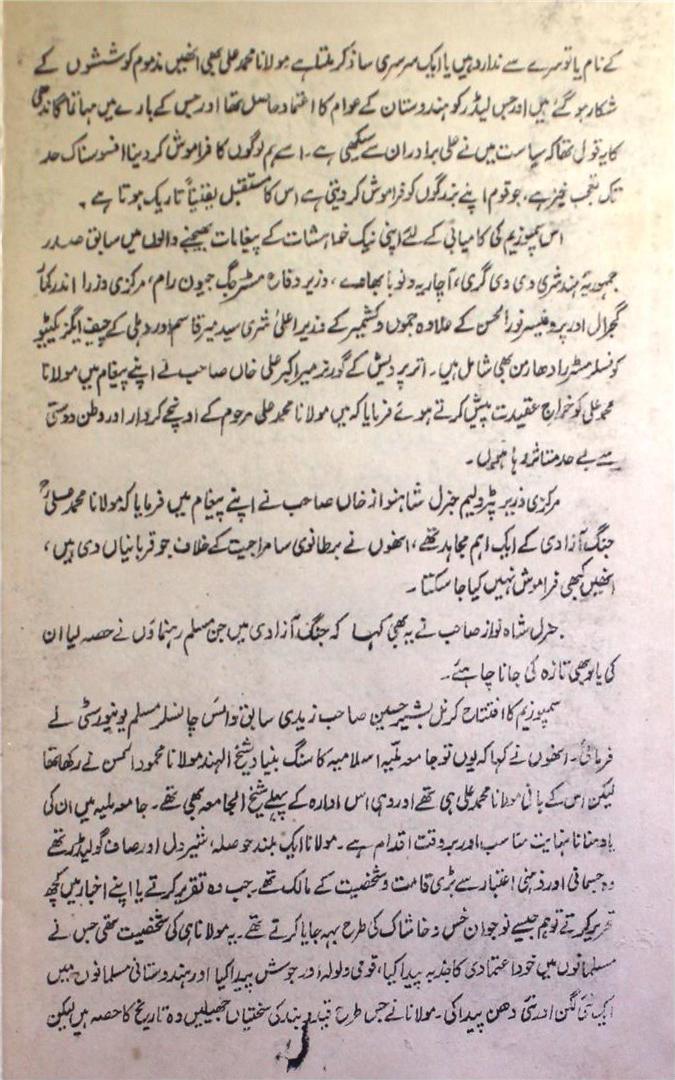 کے نام یا تو سرے سے ندارد ہیں یا ایک سرسری سا ذکر ملتا ہے مولانا محمد علی بھی انھیں مذموم کوششوں کے
شکار ہو گئے ہیں اور جس لیڈر کو ہندوستان کے عوام کا اعتماد حاصل تھا اور جس کے بارے میں مہاتما گاندھی
کا یہ قول تھا کہ سیاست میں نے علی برادران سے سیکھی ہے۔ اسے ہم لوگوں کا فراموش کر دینا افسوسناک حد
تک تعجب خیز ہے، جو قوم اپنے بزرگوں کو فراموش کر دیتی ہے اس کا مستقبل یقیناً تاریک ہوتا ہے۔
اس سمپوزیم کی کامیابی کے لئے اپنی نیک خواہشات کے پیغامات بھیجنے والوں میں سابق صدر
جمہوریۂ ہند شری وی وی گری، آچاریہ ونوبا بھاوے، وزیر دفاع مسٹر جگ جیون رام، مرکزی وزرا اندر کمار
گجرال اور پروفیسر نور الحسن کے علاوہ جموں و کشمیر کے وزیر اعلیٰ شری سید میر قاسم اور دہلی کے چیف ایگزیکیٹو
کونسلر مسٹر رادھا رمن بھی شامل ہیں۔ اتر پردیش کے گورنر میر اکبر علی خاں صاحب نے اپنے پیغام میں مولانا
محمد علی کو خراج عقیدت پیش کرتے ہوئے فرمایا کہ میں مولانا محمد علی مرحوم کے اونچے کردار اور وطن دوستی
سے بے حد متاثر رہا ہوں۔
مرکزی وزیر پٹرولیم جنرل شاہنواز خاں صاحب نے اپنے پیغام میں فرمایا کہ مولانا محمد علیؒ
جنگ آزادی کے ایک اہم مجاہد تھے، انھوں نے برطانوی سامراجیت کے خلاف جو قربانیاں دی ہیں،
انھیں کبھی فراموش نہیں کیا جا سکتا۔
جنرل شاہ نواز صاحب نے یہ بھی کہا کہ جنگ آزادی میں جن مسلم رہنماؤں نے حصہ لیا ان
کی یاد بھی تازہ کی جانا چاہئے۔
سمپوزیم کا افتتاح کرنل بشیر حسین صاحب زیدی سابق وائس چانسلر مسلم یونیورسٹی نے
فرمائی۔ انھوں نے کہا کہ یوں تو جامعہ ملّیہ اسلامیہ کا سنگ بنیاد شیخ الہند مولانا محمود الحسن نے رکھا تھا
لیکن اس کے بانی مولانا محمد علی ہی تھے اور وہی اس ادارہ کے پہلے شیخ الجامعہ بھی تھے۔ جامعہ ملیہ میں ان کی
یاد منانا نہایت مناسب اور بر وقت اقدام ہے۔ مولانا ایک بلند حوصلہ، شیر دل اور صاف گو لیڈر تھے
وہ جسمانی اور ذہنی اعتبار سے بڑی قامت و شخصیت کے مالک تھے۔ جب وہ تقریر کرتے یا اپنے اخبار میں کچھ
تحریر کرتے تو ہم جیسے نوجوان خس و خاشاک کی طرح بہہ جایا کرتے تھے۔ یہ مولانا ہی کی شخصیت تھی جس نے
مسلمانوں میں خود اعتمادی کا جذبہ پیدا کیا، قومی ولولہ اور جوش پیدا کیا اور ہندوستانی مسلمانوں میں
ایک نئی لگن اور نئی دھن پیدا کی۔ مولانا نے جس طرح قید و بند کی سختیاں جھیلیں وہ تاریخ کا حصہ ہیں لیکن